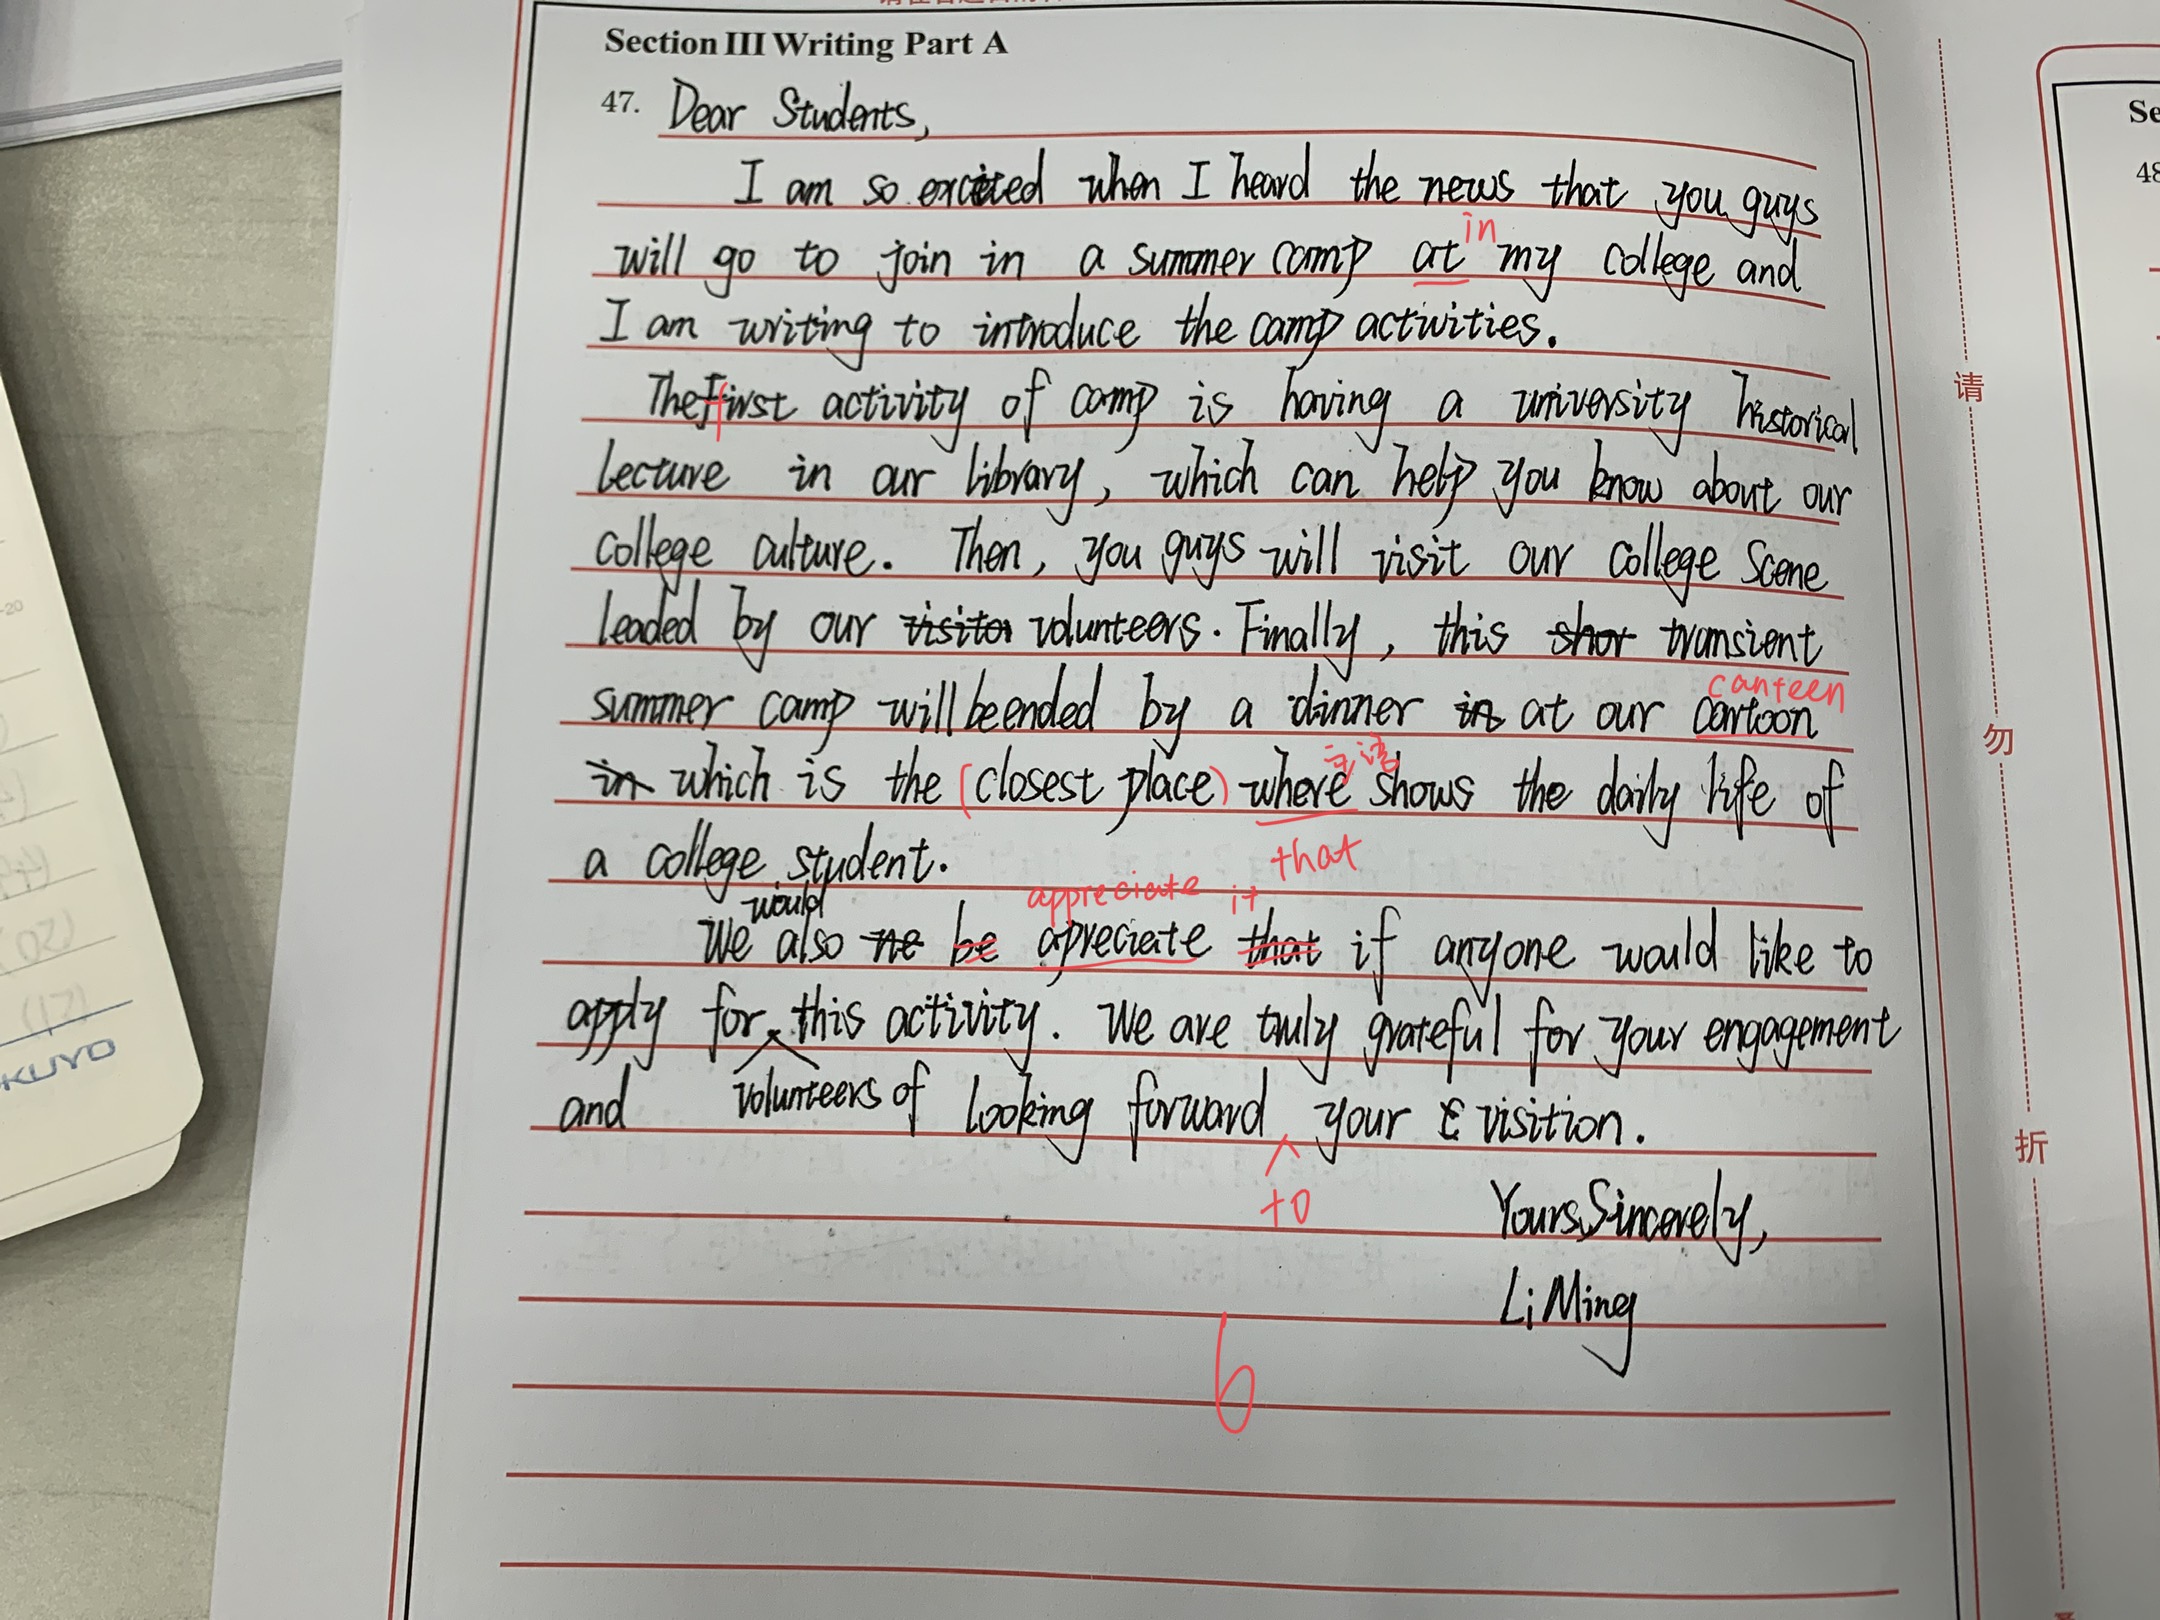 Section III Writing Part A
47. Dear Students,
I am so excited when I heard the news that you guys
in
will go to join in a summer camp at my college and
I am writing to introduce the camp activities.
The first activity of camp is having a university historical
lecture in our library, which can help you know about our
college culture. Then, you guys will visit our college scene
leaded by our visitor volunteers. Finally, this shor transient
canteen
summer camp will be ended by a dinner in at our cartoon
主语
in which is the (closest place) where shows the daily life of
that
a college student.
appreciate it
would
We also ne be apreciate that if anyone would like to
apply for this activity. We are truly grateful for your engagement
and volunteers of looking forward your visition.
to
Yours Sincerely,
Li Ming
6
请
勿
折
Se
48
KUYO
-20
(20)
(21)